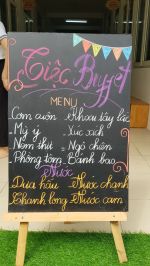 Tiệc Buffet
MENU
Cơm cuộn - Khoai tây lắc
- Mỳ ý - Xúc xích
- Nem thịt - Ngô chiên
- Phồng tôm - Bánh bao
Nước
Dưa hấu - Nước chanh
Chanh lông - Nước cam